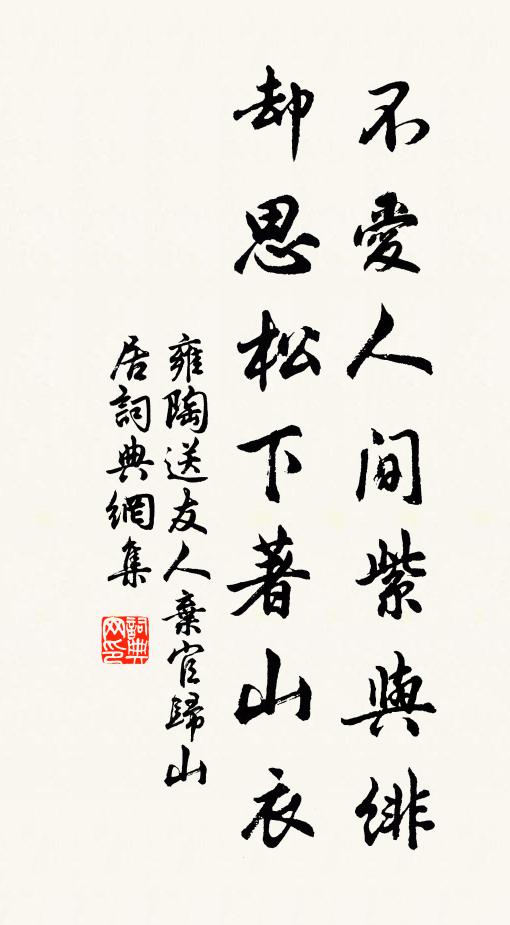 不愛人間紫與緋
却思松下著山衣
雍陶送友人棄官歸山
居詞典網集
詞典网印